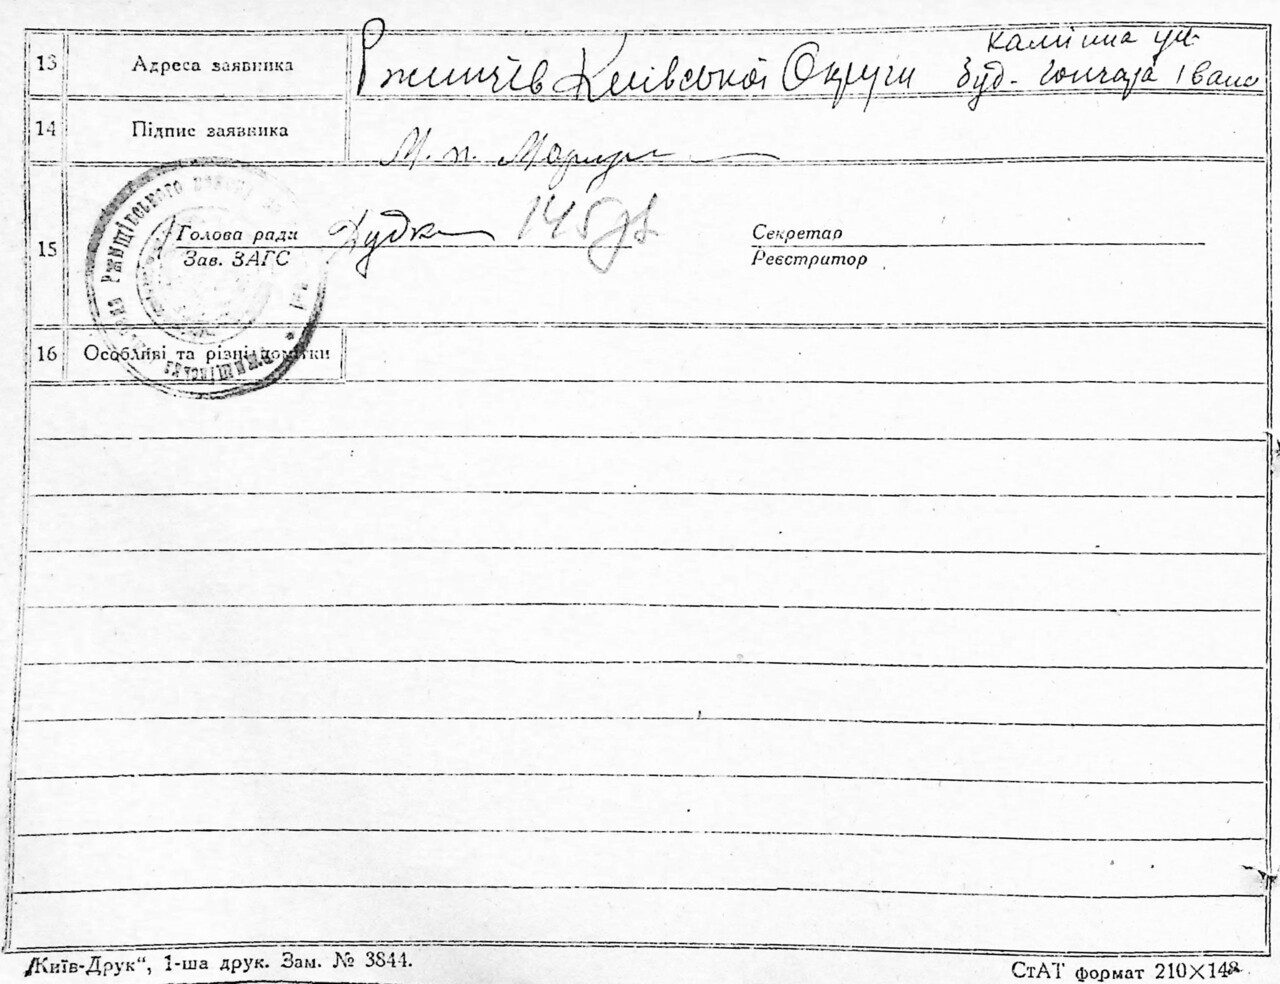 13 Адреса заявника Ржищів Київської Округи
буд. Гончара Івана
14 Підпис заявника М. п.
15 Голова ради Дудка 145
Зав. ЗАГС
Секретар
Реєстратор
РЖИЩІВСЬКОГО
РЖИЩІВСЬКА
16 Особливі та різні помітки
„Київ-Друк“, 1-ша друк. Зам. № 3844.
СтАТ формат 210×148